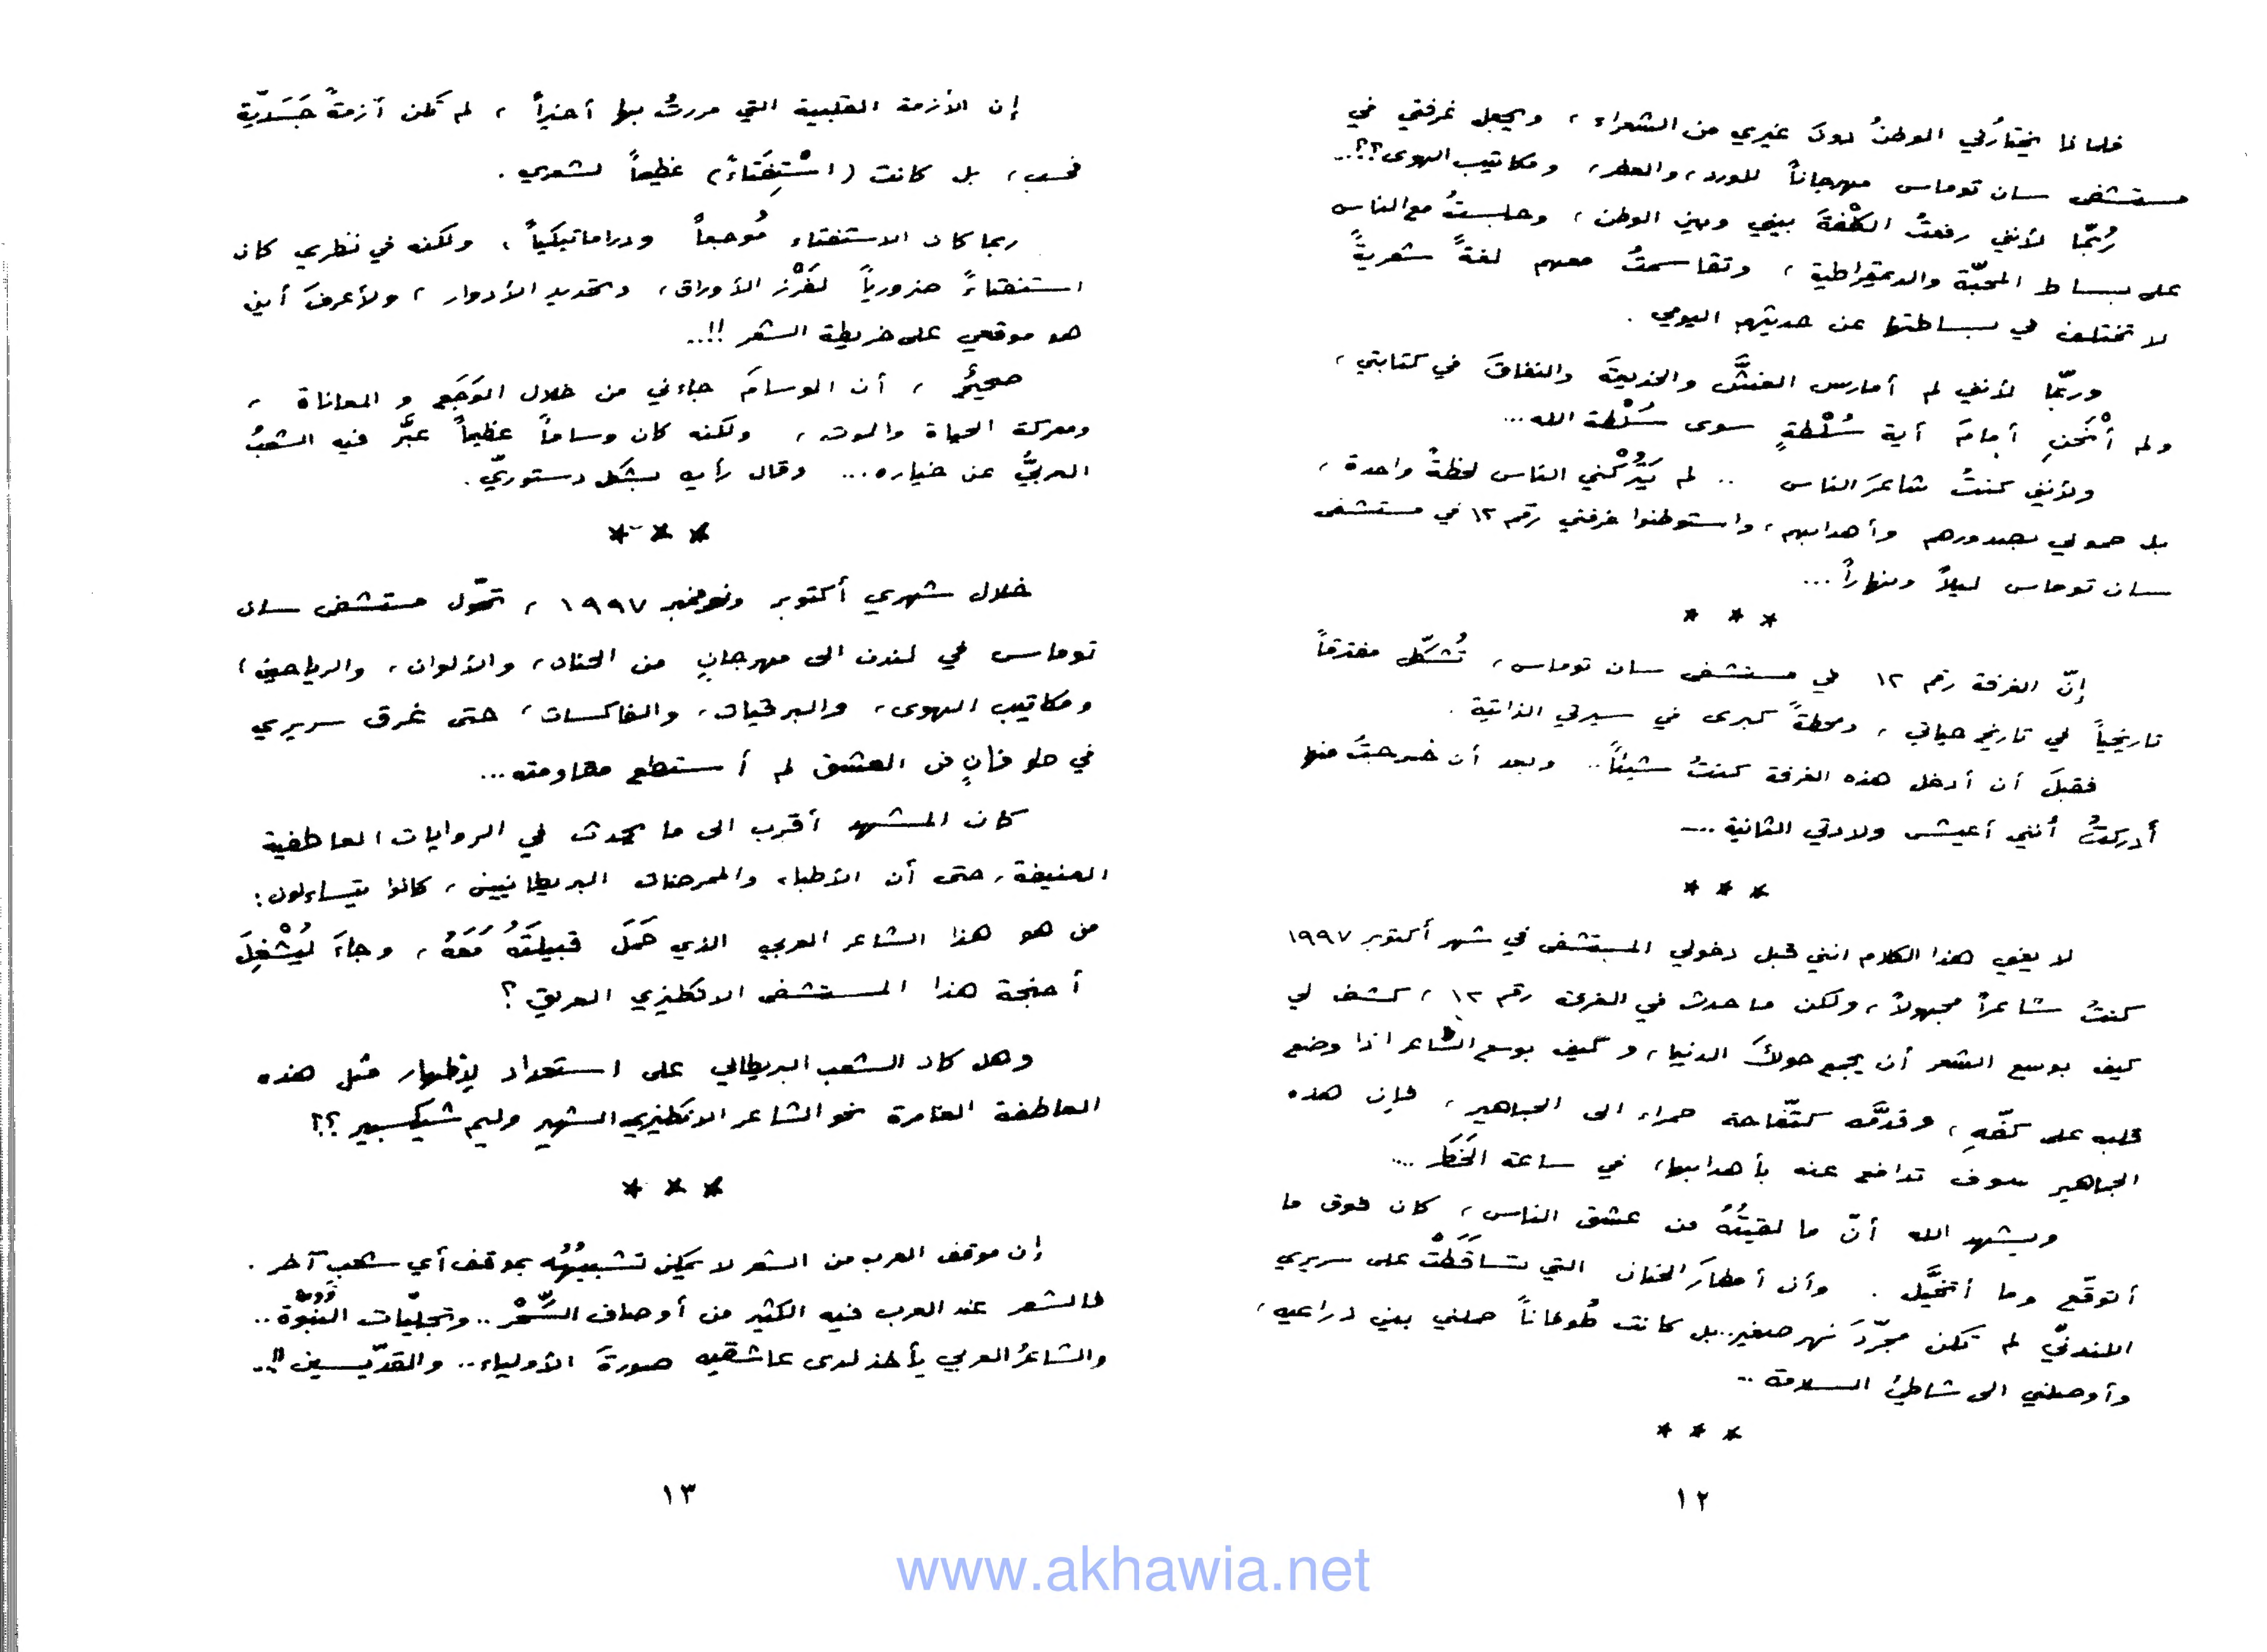 فلماذا يختارُني الوطنُ دونَ غيري من الشعراء، ويجعل غرفتي في
مستشفى سان توماس مهرجاناً للورد، والعطر، ومكاتيب الهوى؟؟..
رُبّما لأنني رفعتُ الكُلْفةَ بيني وبين الوطن، وجلستُ مع الناس
على بساط المحبّة والديمقراطية، وتقاسمتُ معهم لغةً شعريةً
لا تختلف في بساطتها عن حديثهم اليومي.
وربّما لأنني لم أمارس الغشَّ والخديعةَ والنفاقَ في كتابتي،
ولم أنْحَنِ أمامَ أية سُلْطةٍ سوى سُلْطة الله...
ولأنني كنتُ شاعرَ الناس .. لم يَتْرُكْني الناس لحظةً واحدة،
بل حموني بصدورهم وأهدابهم، واستوطنوا غرفتي رقم ١٢ في مستشفى
سان توماس ليلاً ونهاراً...
* * *
إنّ الغرفة رقم ١٢ في مستشفى سان توماس، تُشكّل مفترقاً
تاريخياً في تاريخ حياتي، ومحطةً كبرى في سيرتي الذاتية.
فقبلَ أن أدخل هذه الغرفة كنتُ شيئاً.. وبعد أن خرجتُ منها
أدركتُ أنني أعيش ولادتي الثانية ...
* * *
لا يعني هذا الكلام انني قبل دخولي المستشفى في شهر أكتوبر ١٩٩٧
كنتُ شاعراً مجهولاً، ولكن ما حدث في الغرفة رقم ١٢، كشف لي
كيف بوسع الشعر أن يجمع حولكَ الدنيا، وكيف بوسع الشاعر اذا وضع
قلبه على كفّهِ، وقدَّمه كتفّاحة حمراء الى الجماهير، فإن هذه
الجماهير سوف تدافع عنه بأهدابها، في ساعة الخَطَر ....
ويشهد الله أنّ ما لقيتُهُ من عشق الناس، كان فوق ما
أتوقّع وما أتخيَّل . وأن أمطارَ الحنان التي تساقَطَتْ على سريري
اللندنيّ لم تكن مجرّدَ نهر صغير.. بل كانت طُوفاناً حملني بين ذراعيه،
وأوصلني الى شاطئ السلامة ..
* * *
١٢
إن الأزمة القلبية التي مررتُ بها أخيراً، لم تكن أزمةً جَسَديّة
فحسب، بل كانت (اسْتِفتاءً) عظيماً لشعري.
ربما كان الاستفتاء مُوجعاً ودراماتيكياً، ولكنه في نظري كان
استفتاءً ضرورياً لفَرْز الأوراق، وتحديد الأدوار، ولأعرفَ أين
هو موقعي على خريطة الشعر !!..
صحيحٌ، أن الوسامَ جاءني من خلال الوَجَع و المعاناة،
ومعركة الحياة والموت، ولكنه كان وساماً عظيماً عبَّر فيه الشعبُ
العربيُّ عن خياره... وقال رأيه بشكل دستوريّ.
* * *
خلال شهري أكتوبر ونوفمبر ١٩٩٧، تحوّل مستشفى سان
توماس في لندن الى مهرجانٍ من الحنان، والألوان، والرياحين،
ومكاتيب الهوى، والبرقيات، والفاكسات، حتى غرق سريري
في طوفانٍ من العشق لم أستطع مقاومته...
كان المشهد أقرب الى ما يحدث في الروايات العاطفية
العنيفة، حتى أن الأطباء والممرضات البريطانيين، كانوا يتساءلون:
من هو هذا الشاعر العربي الذي حَمَلَ قبيلتَهُ مَعَهُ، وجاءَ ليُشْغِلَ
أجنحة هذا المستشفى الانكليزي العريق؟
وهل كان الشعب البريطاني على استعداد لإظهار مثل هذه
العاطفة الغامرة نحو الشاعر الانكليزي الشهير وليم شيكسبير؟؟
* * *
إن موقف العرب من الشعر لا يمكن تشبيهُهُ بموقف أي شعب آخر.
فالشعر عند العرب فيه الكثير من أوصاف السِّحْر.. وتجلّيات النُبُوَّة..
والشاعرُ العربي يأخذ لدى عاشقيه صورةَ الأولياء.. والقدّيسين !!..
١٣
www.akhawia.net